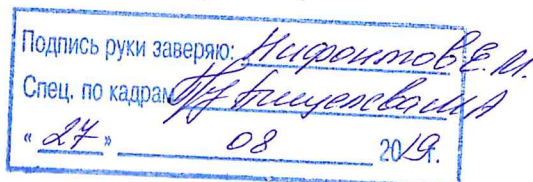 Подпись руки заверяю: Нифонтов Е.М.
Спец. по кадрам
« 27 » 08 2019г.